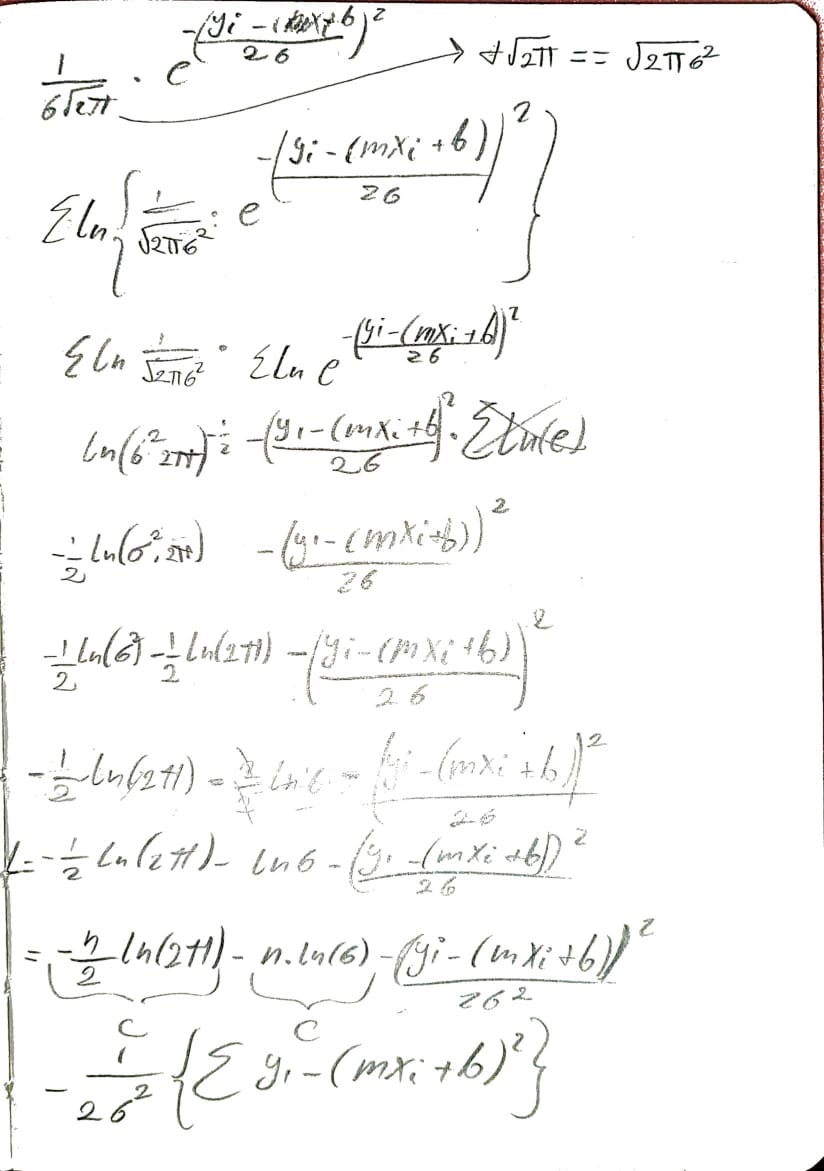 1/(6√2π) · e^(-((yi - (mxi+b)/26)²) → +√2π == √2π6²
Σln{1/√2π6² · e^(-((yi - (mxi + b))/26)²)}
Σln 1/√2π6² · Σln e^(-((yi - (mxi + b))/26)²)
ln(6² 2π)^(-1/2) -((yi - (mxi + b)/26)² · Σln(e)
-1/2 ln(σ², 2π) -(yi - (mxi + b))²/26
-1/2 ln(6²) -1/2 ln(2π) -((yi - (mxi + b))/26)²
-1/2 ln(2π) - 2/2 ln 6 - (yi - (mxi + b))²/26
L = -1/2 ln(2π) - ln 6 - (yi - (mxi + b))²/26
= -n/2 ln(2π) - n.ln(6) - (yi - (mxi + b))²/26²
C C
- 1/26² {Σ yi - (mxi + b)²}